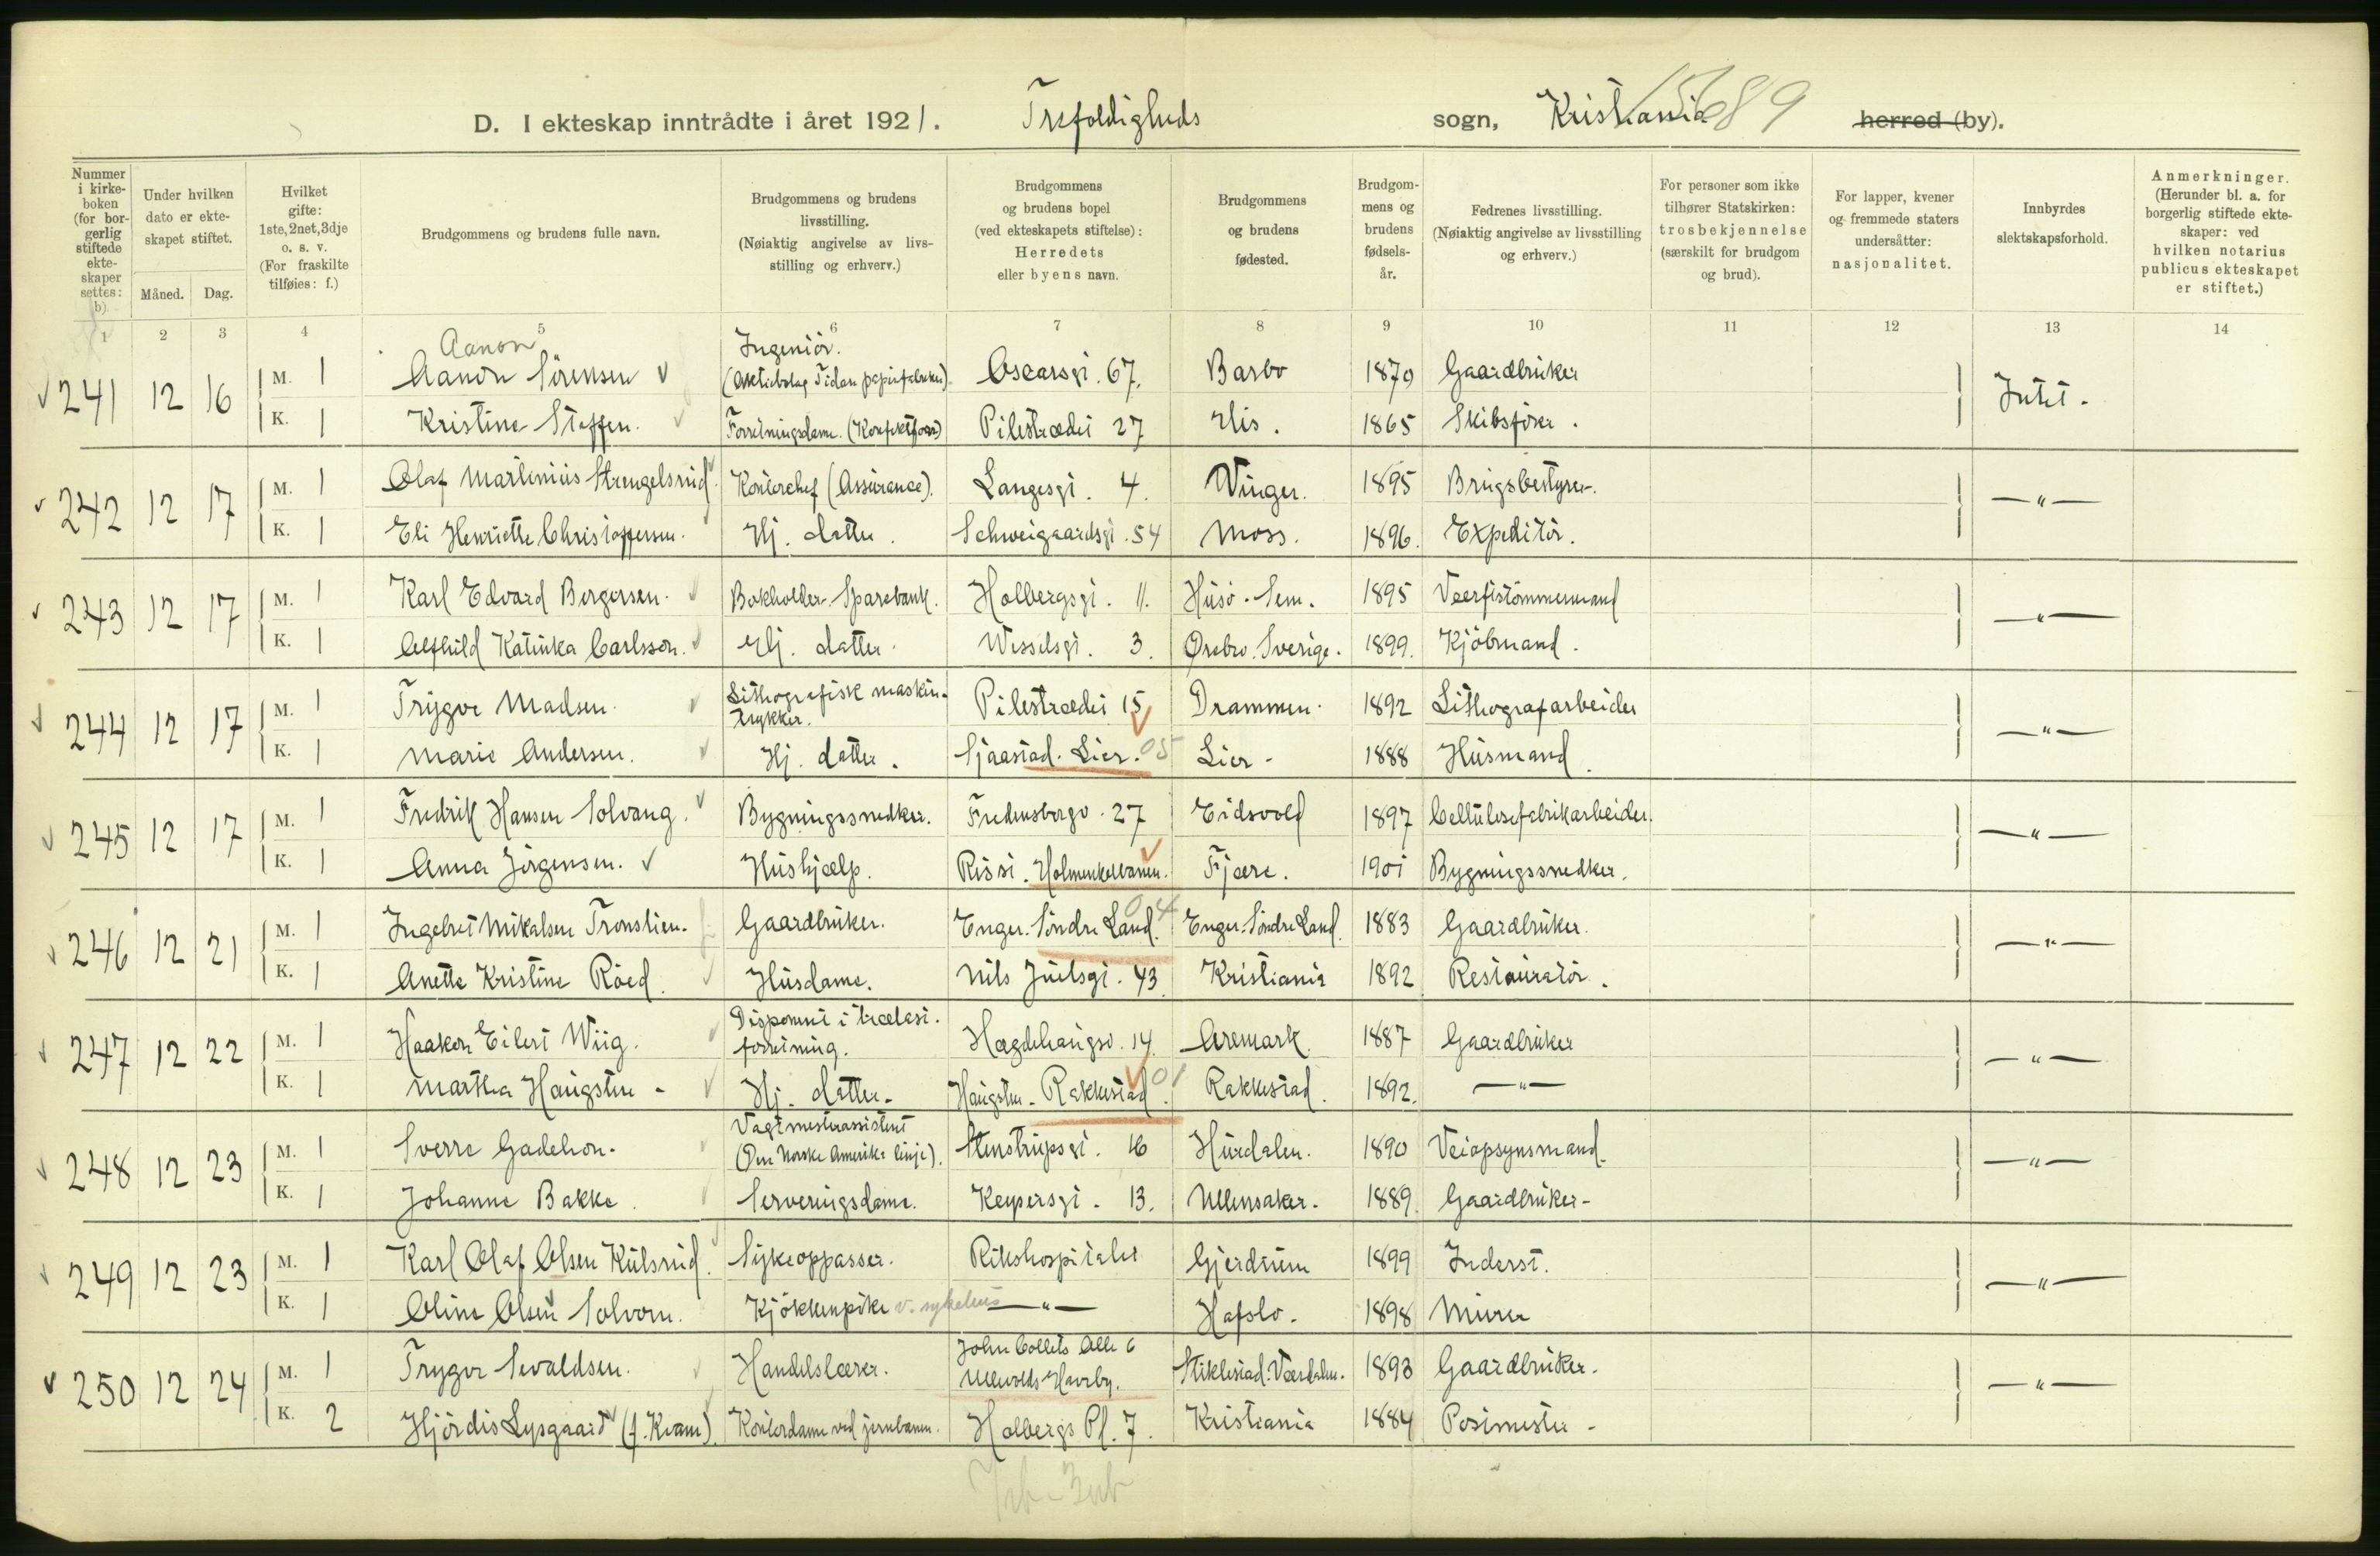 D. I ekteskap inntrådte i året 1921. Trefoldigheds sogn, Kristiania herred (by).
15689
Nummer i kirkeboken (for borgerlig stiftede ekteskaper settes: b)
Under hvilken dato er ekteskapet stiftet.
Måned. Dag.
Hvilket gifte: 1ste, 2net, 3dje o. s. v. (For fraskilte tilføies: f.)
Brudgommens og brudens fulle navn.
Brudgommens og brudens livsstilling. (Nøiaktig angivelse av livsstilling og erhverv.)
Brudgommens og brudens bopel (ved ekteskapets stiftelse): Herredets eller byens navn.
Brudgommens og brudens fødested.
Brudgommens og brudens fødselsår.
Fedrenes livsstilling. (Nøiaktig angivelse av livsstilling og erhverv.)
For personer som ikke tilhører Statskirken: trosbekjennelse (særskilt for brudgom og brud).
For lapper, kvener og fremmede staters undersåtter: nasjonalitet.
Innbyrdes slektskapsforhold.
Anmerkninger. (Herunder bl. a. for borgerlig stiftede ekteskaper: ved hvilken notarius publicus ekteskapet er stiftet.)
1 2 3 4 5 6 7 8 9 10 11 12 13 14
Aanon
241 12 16 M. 1 Aanon Sörensen Ingeniör. (Aktiebolag Tidan papirfabriker). Oscarsgt. 67. Barbo 1870 Gaardbruker Intet.
K. 1 Kristine Steffen. Forretningsdame. (Konfektion) Pilestrædet 27 His. 1865 Skibsförer.
242 12 17 M. 1 Olaf Martinius Strengelsrud. Kontorchef (Assurance). Langesgt. 4. Vinger. 1895 Brugsbestyrer. —"—
K. 1 Eli Henriette Christoffersen. Hj. datter. Schweigaardsgt. 54 Moss. 1896. Expeditör.
243 12 17 M. 1 Karl Edvard Bergersen. Bokholder. Sparebank. Holbergsgt. 11. Husö. Sem. 1895 Værftstömmermand —"—
K. 1 Alfhild Katinka Carlsson. Hj. datter. Wesselsgt. 3. Ørebro. Sverige. 1899. Kjöbmand.
244 12 17 M. 1 Trygve Madsen. Lithografisk maskintrykker. Pilestrædet 15 Drammen. 1892 Lithografarbeider —"—
K. 1 Marie Andersen. Hj. datter. Sjaastad. Lier. 05 Lier. 1888 Husmand.
245 12 17 M. 1 Fredrik Hansen Solvang. Bygningssnedker. Fredensborgv. 27 Eidsvold 1897 Cellulosefabrikarbeider. —"—
K. 1 Anna Jörgensen. Hushjælp. Rissi. Holmenkolbanen. Fjære. 1901 Bygningssnedker.
246 12 21 M. 1 Ingebret Mikalsen Tronslien. Gaardbruker. Enger. Söndre Land. 04 Enger. Söndre Land. 1883 Gaardbruker. —"—
K. 1 Anette Kristine Röed. Husdame. Nils Juelsgt. 43. Kristiania 1892 Restauratör.
247 12 22 M. 1 Haakon Eilert Wiig. Disponent i trælastforretning. Hægdehaugsv. 14. Aremark. 1887 Gaardbruker —"—
K. 1 Martha Haugsten. Hj. datter. Haugsten. Rakkestad. 01 Rakkestad. 1892. —"—
248 12 23 M. 1 Sverre Gadehon. Vagtmesterassistent (Den Norske Amerika linje). Stenstrupsgt. 16 Hurdalen. 1890 Veiopsynsmand. —"—
K. 1 Johanne Bakke. Serveringsdame. Keysersgt. 13. Ullensaker. 1889. Gaardbruker.
249 12 23 M. 1 Karl Olaf Olsen Kulsrud. Sykeoppasser. Rikshospitalet Gjerdrum 1899 Inderst. —"—
K. 1 Oline Olsen Solvorn. Kjökkenpike v. sykehus —"— Hafslo. 1898 Murer
250 12 24 M. 1 Trygve Sevaldsen. Handelslærer. John Collets Alle 6 Ullevolds Haveby. Stiklestad. Værdalen. 1893 Gaardbruker. —"—
K. 2 Hjördis Lysgaard (f. Kvam). Kontordame ved jernbanen. Holbergs Pl. 7. Kristiania 1884 Postmester.